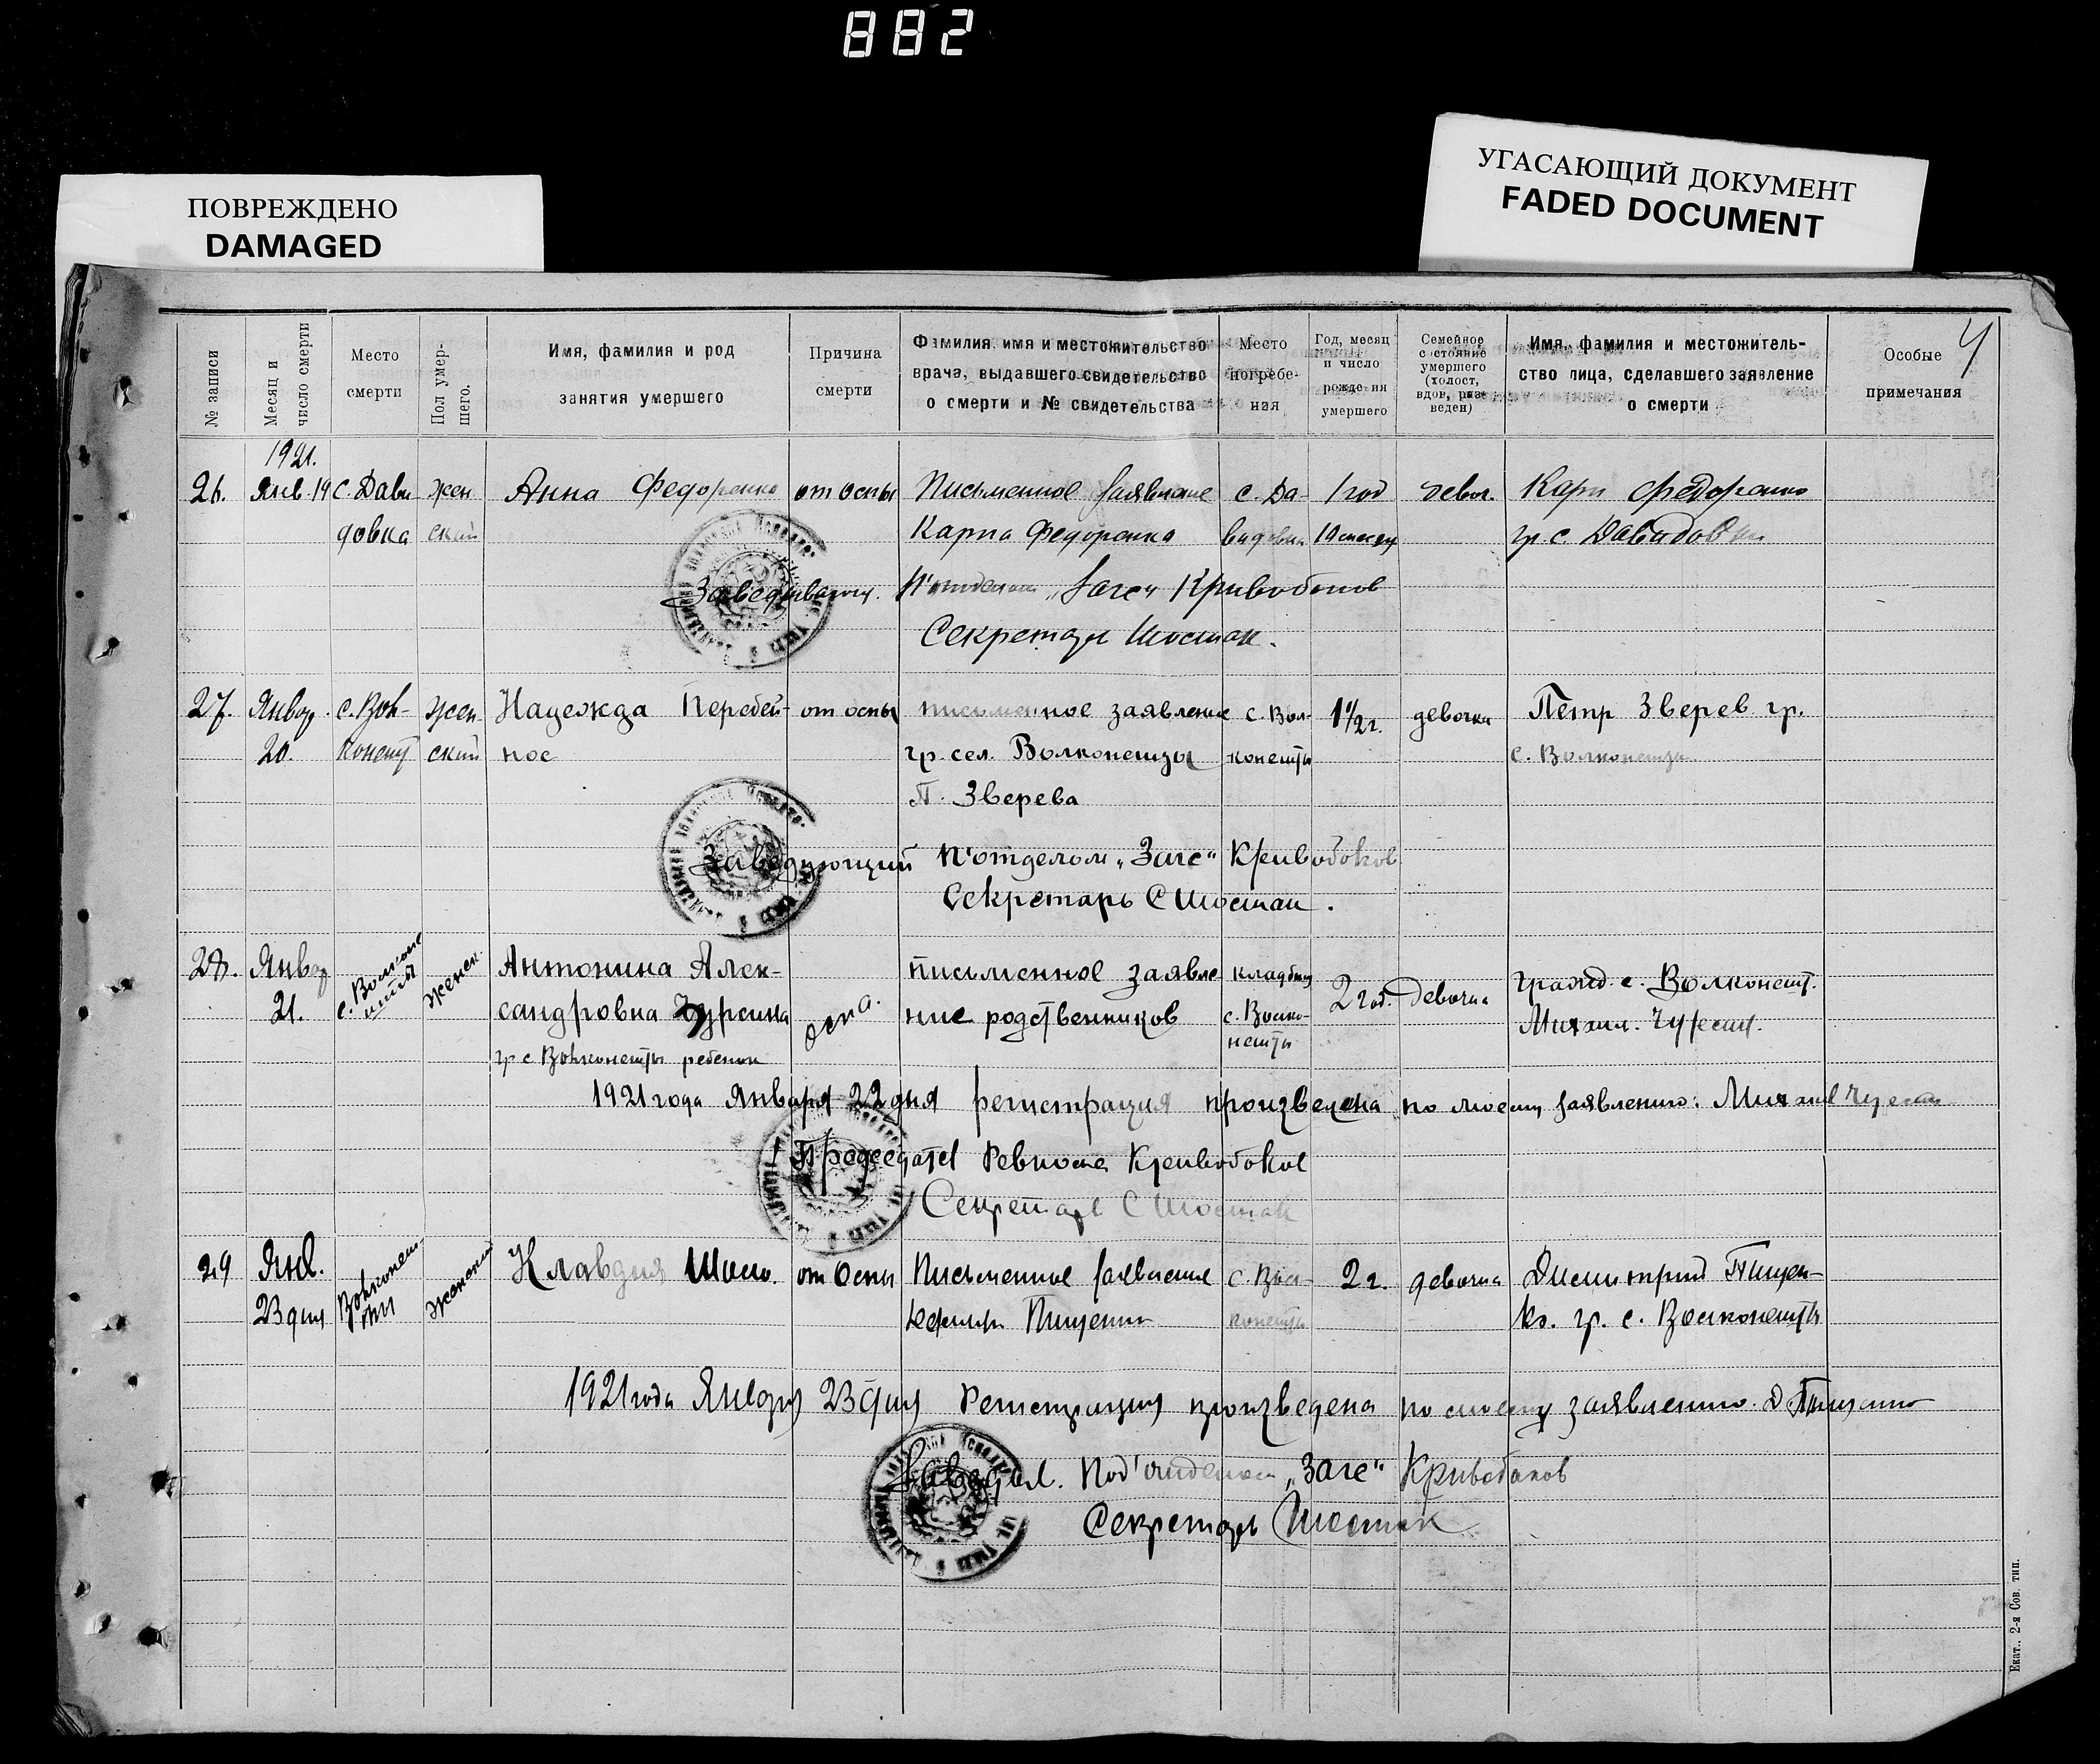 882
ПОВРЕЖДЕНО
DAMAGED
УГАСАЮЩИЙ ДОКУМЕНТ
FADED DOCUMENT
4
№ записи
Месяц и
число смерти
Место
смерти
Пол умер-
шего.
Имя, фамилия и род
занятия умершего
Причина
смерти
Фамилия, имя и местожительство
врача, выдавшего свидетельство
о смерти и № свидетельства
Место
погребе-
ния
Год, месяц
и число
рождения
умершего
Семейное
состояние
умершего
(холост,
вдов, раз-
веден)
Имя, фамилия и местожитель-
ство лица, сделавшего заявление
о смерти
Особые
примечания
1921.
26.
Янв. 19
с. Дави
довка
жен
ский
Анна Федоренко
от оспы
Письменное заявление
Карпа Федоренка
с. Да-
видовка
1 год
10 месяц
девоч.
Карп Федоренко
гр. с. Давидовки
Заведывающ. П'отделом „Загс“ Кривобоков
Секретарь Шостак.
27.
Январ.
20.
с. Вол-
конешт
жен-
ский
Надежда Перебей-
нос
от оспы
письменное заявление
гр. сел. Волконешты
П. Зверева
с. Вол-
конешты
1 1/2 г.
девочка
Петр Зверев гр.
с. Волконешты
Заведующий п'отделом „Загс“ Кривобоков
Секретарь С Шостак.
28.
Январ
21.
с. Волконе
шты
женск.
Антонина Алек-
сандровна
гр с Волконешты ребенок
оспа.
письменное заявле
ние родственников
кладбищ
с. Волко-
нешты
2 год.
девочка
гражд. с. Волконешт.
Михаил.
1921 года Января 22 дня регистрация произведена по моему заявлению: Михаил
Председател Ревкома Кривобоков
Секретарь С Шостак
29
Янв.
23 дня
Волконеш-
ты
женский
Клавдия
от Оспы
Письменное заявление
Пищенко
с. Вол-
конешты
2 г.
девочка
Дмитрий Пищен-
ко. гр. с. Волконешты
1921 года Января 23 дня Регистрация произведена по моему заявлению. Д Пищенко
Заведыв. Под'отделом „Загс“ Кривобоков
Секретарь Шостак
Екат.. 2-я Сов. тип.